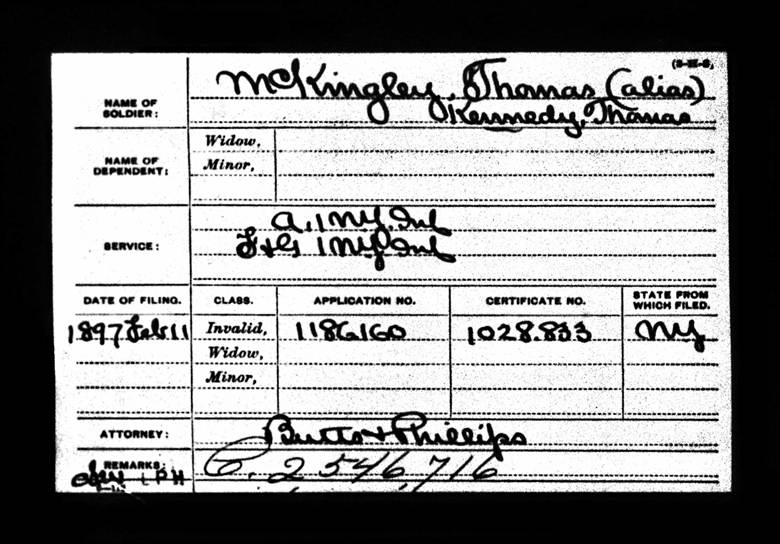 McKingley, Thomas (alias)
NAME OF SOLDIER:
Kennedy, Thomas
NAME OF DEPENDENT:
Widow,
Minor,
SERVICE:
A, 1 N.Y. Inf
F & G 1 N.Y. Inf
DATE OF FILING. CLASS. APPLICATION NO. CERTIFICATE NO. STATE FROM WHICH FILED.
1897 Feb 11 Invalid, 1186160 1028.833 NY
Widow,
Minor,
ATTORNEY: Butts & Phillips
REMARKS: C. 2546,716